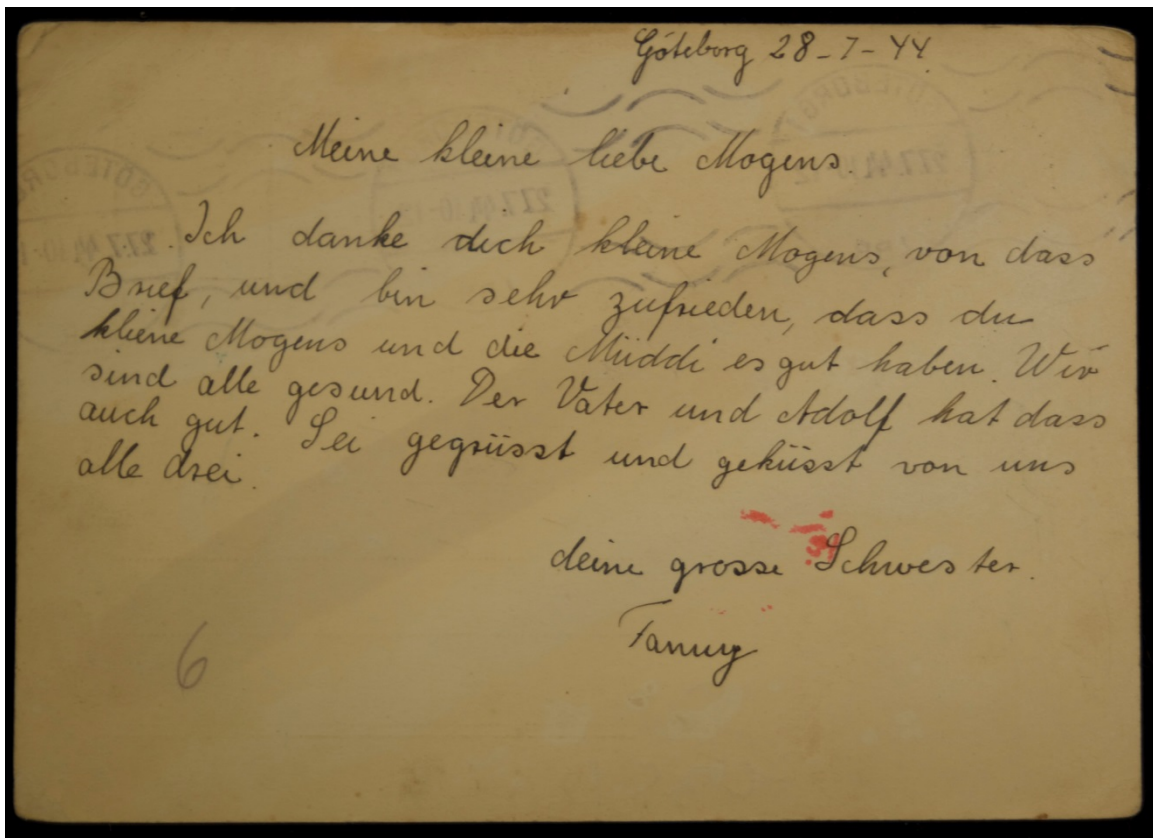 Göteborg 28-7-44
Meine kleine liebe Mogens.
Ich danke dich kleine Mogens, von dass
Brief, und bin sehr zufrieden, dass du
kliene Mogens und die Müddi es gut haben. Wir
sind alle gesund. Der Vater und Adolf hat dass
auch gut. Sei gegrüsst und geküsst von uns
alle drei.
deine grosse Schwester.
Fanny
6